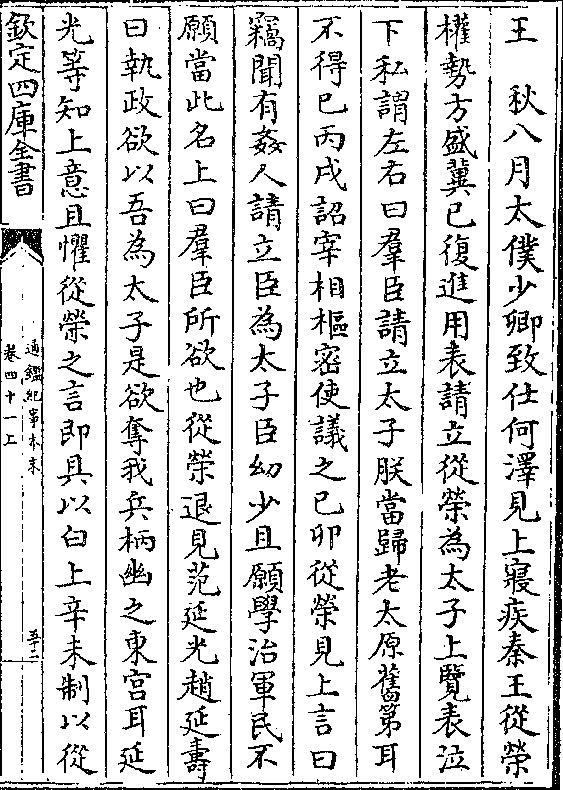 王　秋八月太僕少卿致仕何澤見上寢疾秦王從榮
權勢方盛冀已復進用表請立從榮為太子上覽表泣
下私謂左右曰羣臣請立太子朕當歸老太原舊第耳
不得已丙戌詔宰相樞密使議之己卯從榮見上言曰
竊聞有姦人請立臣為太子臣幼少且願學治軍民不
願當此名上曰羣臣所欲也從榮退見范延光趙延壽
曰執政欲以吾為太子是欲奪我兵柄幽之東宮耳延
光等知上意且懼從榮之言即具以白上辛未制以從
欽定四庫全書
通鑑紀事本末
卷四十一上
五十二